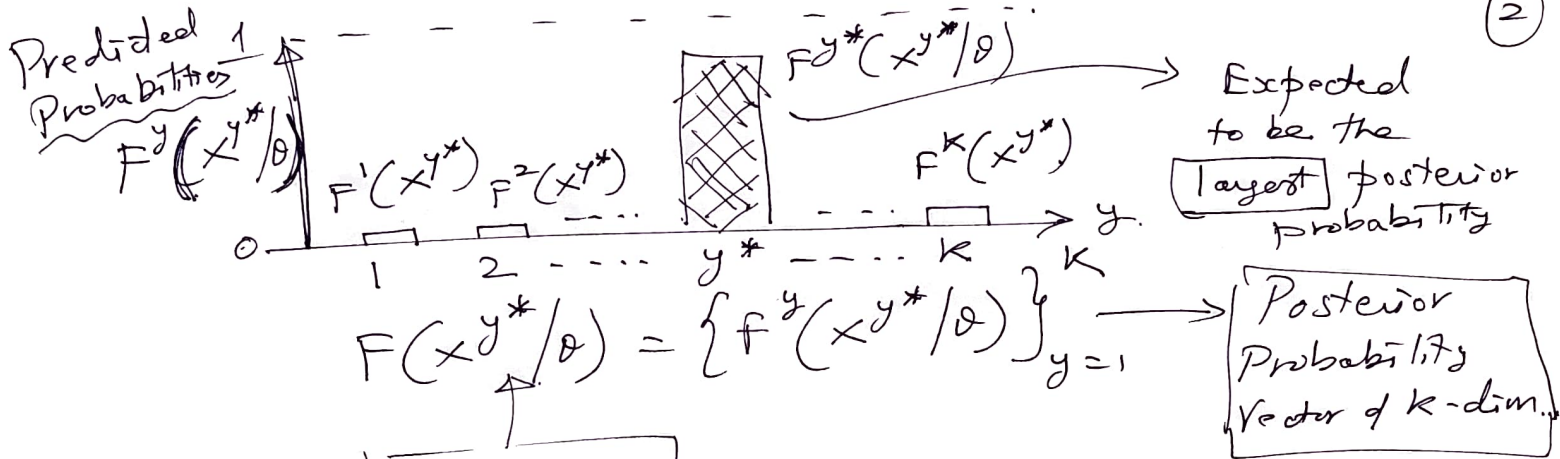 2
Predicted
Probabilities
F^y(x^{y*}/θ)
1
0
F^1(x^{y*})
F^2(x^{y*})
....
F^{y*}(x^{y*}/θ)
- ....
F^K(x^{y*})
1 2 - .... y* ---.. K
y.
Expected
to be the
largest posterior
probability
F(x^{y*}/θ) = {F^y(x^{y*}/θ)}_{y=1}^K
Posterior
Probability
Vector of K-dim.